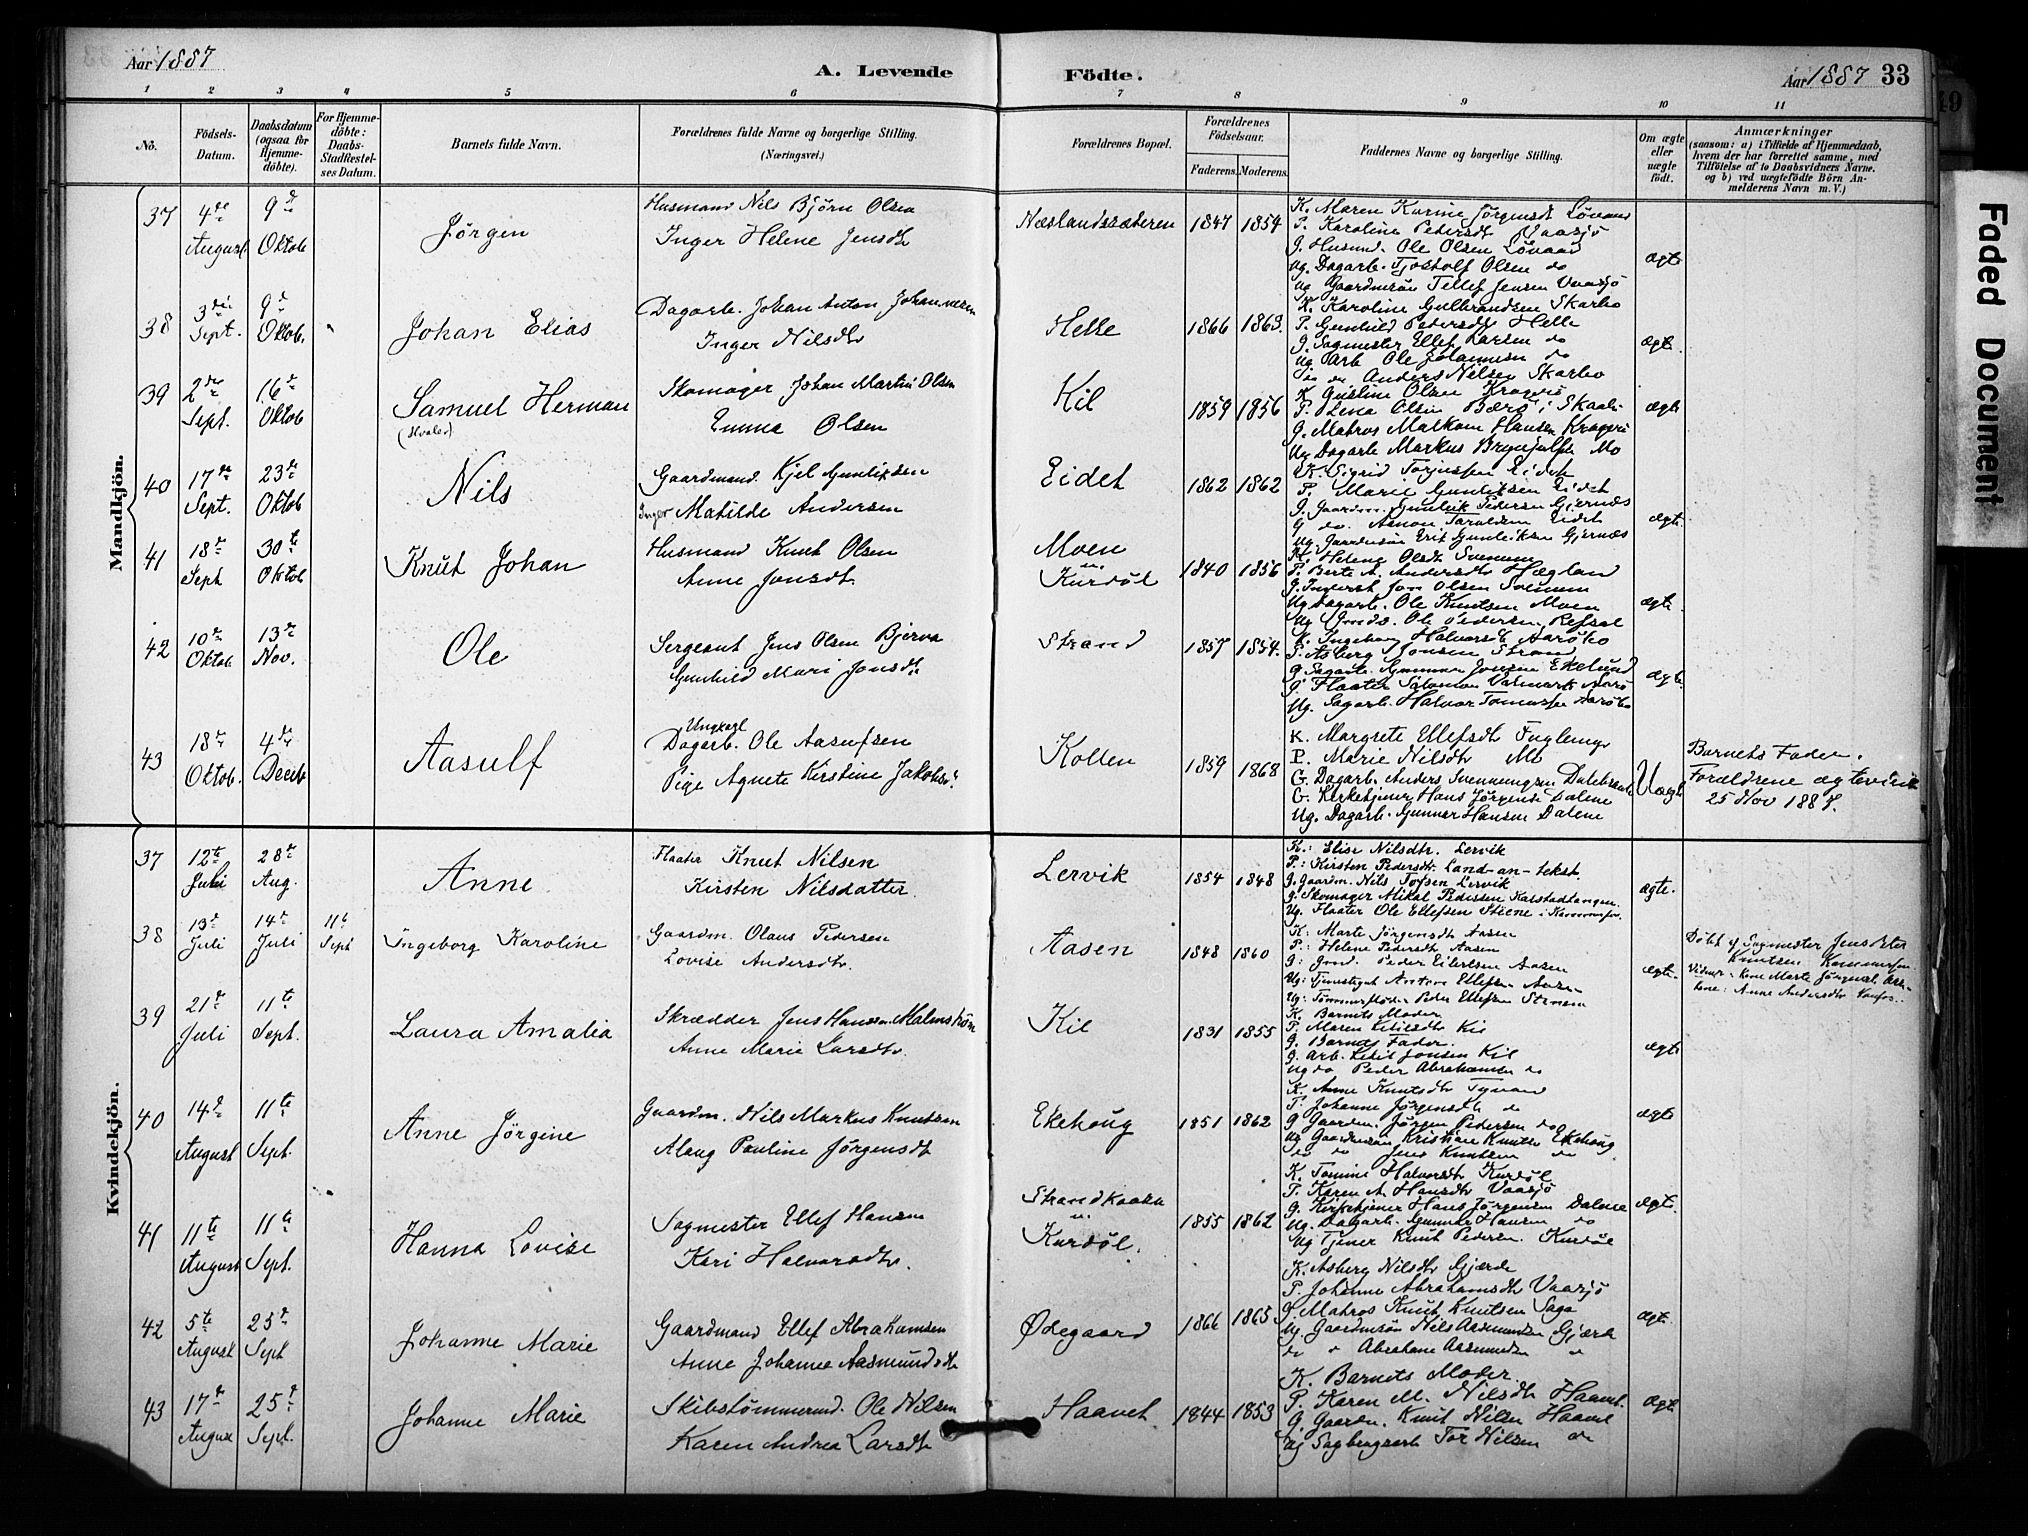 Aar 1887
A. Levende Födte.
Aar 1887 33
1 2 3 4 5 6 7 8 9 10 11
No.
Födsels-Datum.
Daabsdatum (ogsaa for Hjemme-döbte).
For Hjemme-döbte: Daabs-Stadfæstel-ses Datum.
Barnets fulde Navn.
Forældrenes fulde Navne og borgerlige Stilling. (Næringsvei.)
Forældrenes Bopæl.
Forældrenes Födselsaar.
Faderens. Moderens.
Faddernes Navne og borgerlige Stilling.
Om ægte eller uægte födt.
Anmærkninger
(saasom: a) i Tilfælde af Hjemmedaab,
hvem der har forrettet samme, med
Tilföielse af to Daabsvidners Navne.
og b) ved uægtefödte Börn An-
melderens Navn m. V.)
Mandkjön.
37 4de August 9de Oktob Jørgen
Husmand Nils Bjørn Olsen
Inger Helene Jensdtr
Næslandssæteren 1847 1854
K. Maren Karine Jørgensdt
P. Karoline Pedersdt Vaasjø
G. Husmd. Ole Olsen
Ug. Dagarb. Tjostolf Olsen do
Ug Gaardmsøn Tellef Jensen Vaasjø
ægte
38 3die Sept. 9de Oktob. Johan Elias
Dagarb. Johan Anton Johannesen
Inger Nilsdtr
Helle 1866 1863.
K. Karoline Gulbrandsen Skarbo
P. Gunhild Pedersdtr Helle
G. Sagmester Ellef Larsen do
Ug Arb Ole Johannesen do
do Anders Nilsen Skarbo
ægte.
39 2den Sept. 16de Oktob Samuel Herman
Skomager Johan Martin Olsen
Emma Olsen
Kil 1859 1856
K. Gustine Olsen Kragerø
P. Lena Olsen Bærø i Skaatø
G. Matros Markom Hansen Kragerø
Ug Dagarb Markus Brynjulfs. Mo
ægte
40 17de Sept. 23de Oktob Nils
Gaardmand. Kjel Gunliksen
Inger Matilde Andersen
Eidet 1862 1862
K. Sigrid Torjussen Eidet
P. Marie Gunliksen Eidet
G. Gaardm. Gunleik Pedersen Gjernæs
G do. Asmon Taraldsen Eidet
Ug. Gaardmsøn Erik Gunleiksen Gjernæs
ægte.
41 18de Sept 30te Oktob Knut Johan
Husmand Knut Olsen
Anne Jonsdtr
Moen u. Kurdøl 1840 1856
K. Helene Olsdt Svenum
P. Berte A. Andersdtr Hægland
G. Jon Olsen Svenum
Ug Dagarb. Ole Knutsen Moen
Ug Ole Pedersen Refsal
ægte.
42 10de Oktob. 13de Nov. Ole
Sergeant Jens Olsen Bjerva
Gunhild Mari Jonsdtr
Strand 1857 1854.
K. Ingeborg Halvorsdt Aarøko
P. Asberg Jonsen Strand
G. Sagarb. Gunnar Jonsen Ekelund
G. Flaater Salomon
Ug. Sagarb. Halvor
ægte.
43 18de Oktob. 4de Decb Aasulf
Ungkarl
Dagarb. Ole Aasufsen
Pige Agnete Kirstine Jakobsd.
Kollen 1859 1868
K. Margrete Ellefsdt Fuglemyr
P. Marie Nilsdtr Mo
G. Dagarb. Anders Svennungsen
G. Kirketjener Hans Jørgensen Dalene
Ug. Dagarb. Gunnar Hansen Dalene
Uægte
Barnets Fader.
Forældrene ægteviede
25 Nov 1887.
Kvindekjön.
37 12te Juli 28de Aug. Anne
Flaater Knut Nilsen
Kirsten Nilsdatter.
Lervik 1854 1848
K.: Elise Nilsdtr. Lervik
P.: Kirsten Pedersdtr.
G. Gaardm. Nils Torsen Lervik
G. Skomager Mikal Pedersen
Ug. Flaater Ole Ellefsen
ægte.
38 13de Juli 14de Juli 11te Sept Ingeborg Karoline
Gaardm. Olaus Pedersen
Lovise Andersdtr.
Aasen 1848 1860
K: Marte Jørgensdt Aasen
P: Helene Pedersdtr Aasen
G: Peder Eilertsen Aasen
Ug: Ellefsen Aasen
Ug: Peder Ellefsen
ægte.
Døbt af Sagmester Jens Peter
Knutsen
Vidner: Kone Marte Jørgensd. Aasen
Anne Andersdtr
39 21de Juli 11te Sept. Laura Amalia
Skrædder Jens Hansen Malmstrøm
Anne Marie Larsdtr.
Kil 1831 1855
K. Barnets Moder
P. Maren Ketilsdtr Kil
G. Barnets Fader.
G. Arb. Ketil Jonsen Kil
Ug do Peder Abrahamsen do
ægte
40 14de August 11te Sept. Anne Jørgine
Gaardm. Nils Markus Knutsen
Aslaug Pauline Jørgensdt
Ekehoug 1851 1862
K. Anne Knutsdtr
P. Johanne Jørgensdtr do
G Gaardm. Jørgen Pedersen do
Ug Gaardmsøn Kristian Knutsen Ekehoug
do do Jens Knutsen do
ægte
41 11te August 11te Sept. Hanna Lovise
Sagmester Ellef Hansen
Kari Halvorsdtr.
Strandkaasa u. Kurdøl. 1855 1862
K. Tomine Halvorsdtr Kurdøl
P. Karen A. Hansdtr Vaasjø
G. Kirketjener Hans Jørgensen Dalene
Ug. Dagarb. Gunnar Hansen do
Ug Tjener Knut Pedersen. Kurdøl
ægte.
42 5te August 25de Sept Johanne Marie
Gaardmand Ellef Abrahamsen
Anne Johanne Aasmundsdt
Ødegaard 1866 1865
K. Asberg Nilsdtr Gjærde
P. Johanne Abrahamsdtr Vaasjø
G Matros Knut Knutsen Saga
Ug. Gaardmsøn Nils Aasmundsen Gjærde
do Abraham Aasmundsen
ægte.
43 17de August 25de Sept. Johanne Marie
Skibstømmermd. Ole Nilsen
Karen Andrea Larsdtr
Haavet 1844 1853
K. Barnets Moder.
P. Karen M. Nilsdtr Haavet.
G Gaardm. Knut Nilsen Haavet
Ug Sagbrugsarb Tor Nilsen do
Ægte
Faded Document